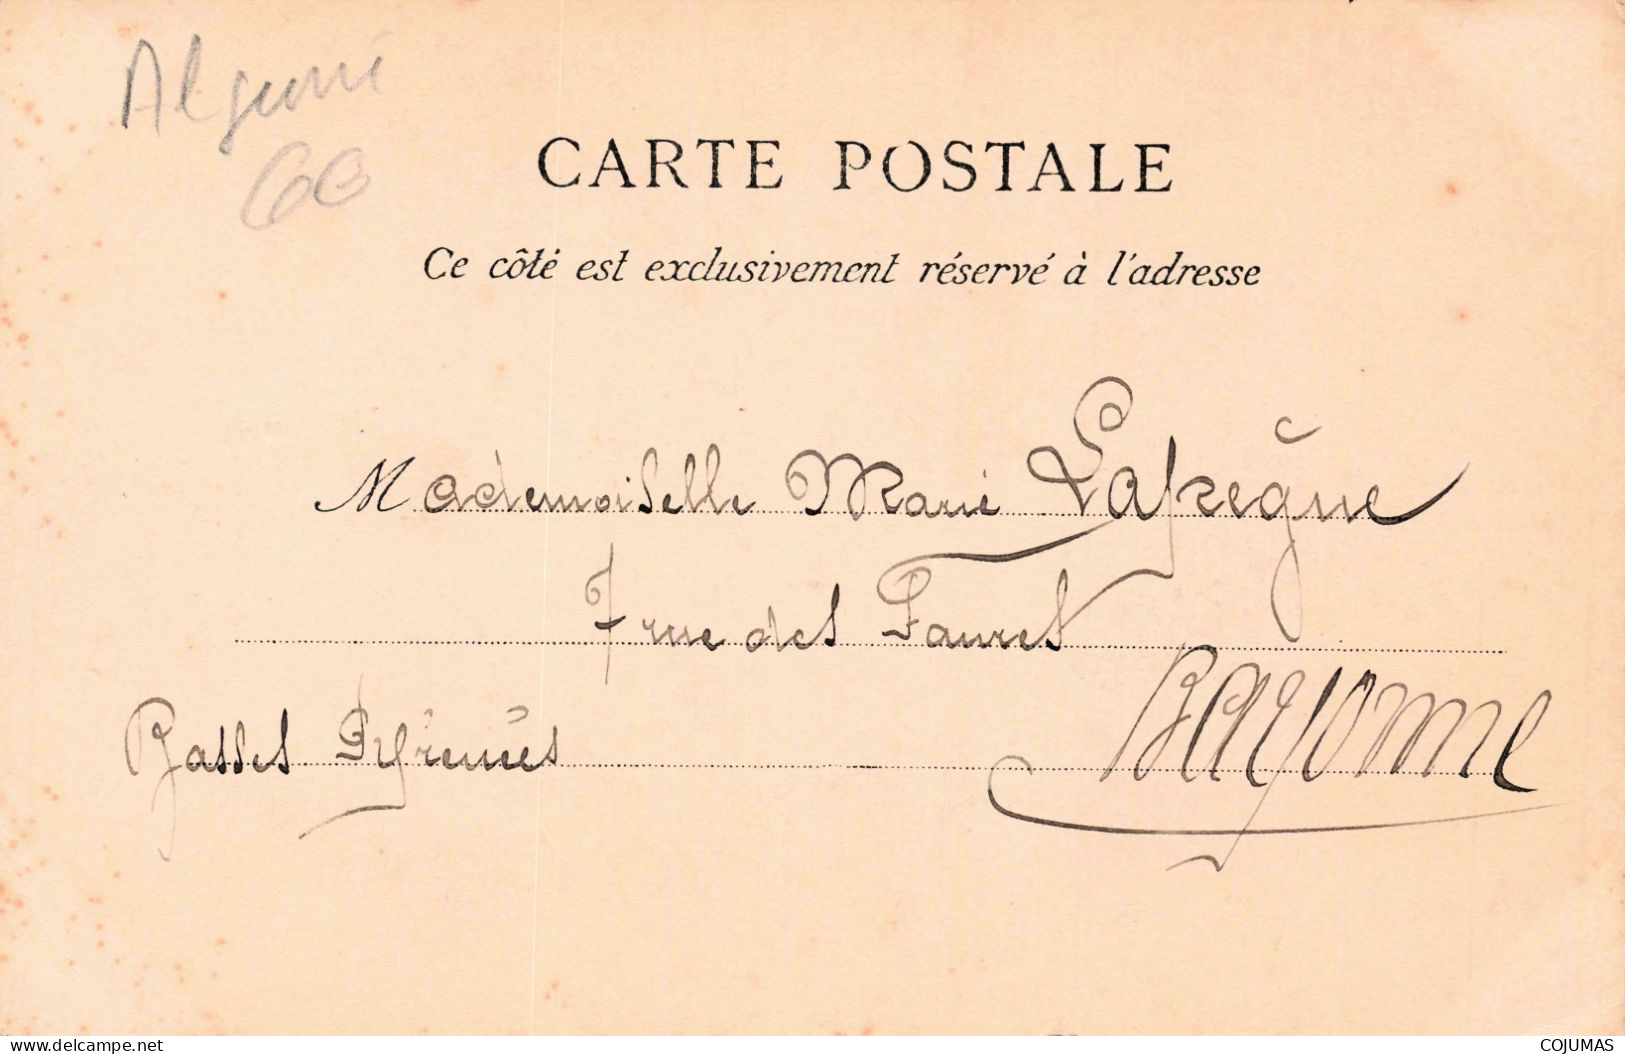 Algerie
6€
CARTE POSTALE
Ce côté est exclusivement réservé à l'adresse
Mademoiselle Marie Lafregne
7 rue des Faures
Bayonne
Basses Pyrenées
www.delcampe.net
COJUMAS